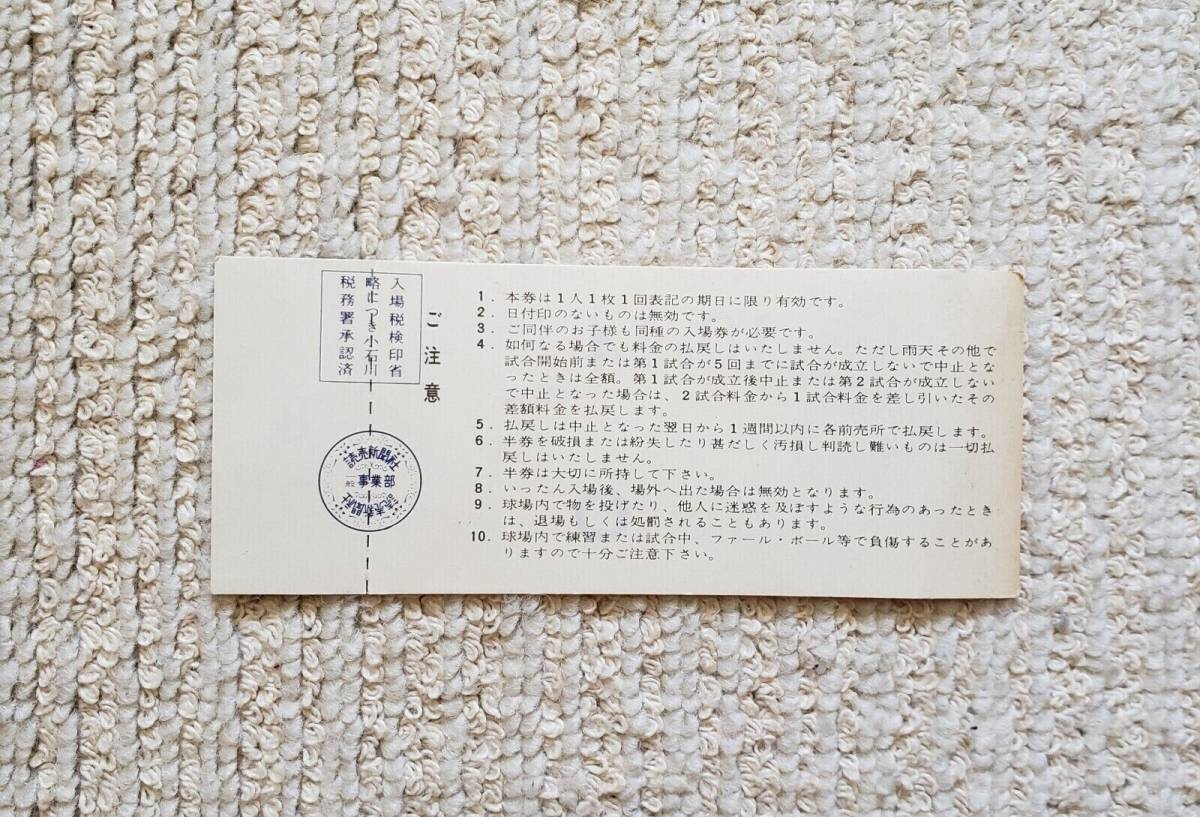 入場税検印省
略につき小石川
税務署承認済
読売新聞社
般
事業部
読売新聞社
ご注意
1. 本券は1人1枚1回表記の期日に限り有効です。
2. 日付印のないものは無効です。
3. ご同伴のお子様も同種の入場券が必要です。
4. 如何なる場合でも料金の払戻しはいたしません。ただし雨天その他で
試合開始前または第1試合が5回までに試合が成立しないで中止とな
ったときは全額。第1試合が成立後中止または第2試合が成立しない
で中止となった場合は、2試合料金から1試合料金を差し引いたその
差額料金を払戻します。
5. 払戻しは中止となった翌日から1週間以内に各前売所で払戻します。
6. 半券を破損または紛失したり甚だしく汚損し判読し難いものは一切払
戻しはいたしません。
7. 半券は大切に所持して下さい。
8. いったん入場後、場外へ出た場合は無効となります。
9. 球場内で物を投げたり、他人に迷惑を及ぼすような行為のあったとき
は、退場もしくは処罰されることもあります。
10. 球場内で練習または試合中、ファール・ボール等で負傷することがあ
りますので十分ご注意下さい。